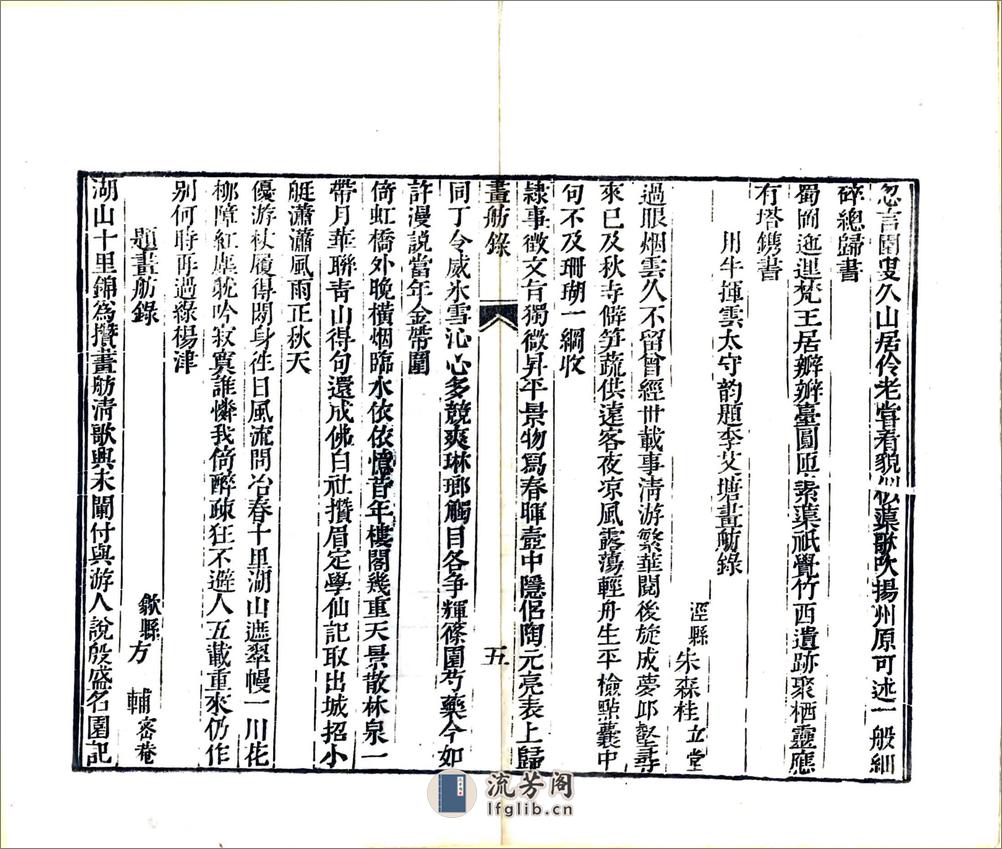 忽言園叟久山居伶老嘗看貌蕖歌吹揚州原可述一般細
碎總歸書
蜀岡迤邐梵王居辦辦臺圓匝素蕖祇覺竹西遺跡聚栖靈應
有塔鐫書
用牛揮雲太守韵題李艾塘畫舫錄
涇縣朱森桂立堂
過眼烟雲久不留曾經卅載事清游繁華閱後旋成夢邱壑尋
來已及秋寺僻笋蔬供遠客夜凉風露蕩輕舟生平檢點囊中
句不及珊瑚一綱收
隸事徵文旨獨微昇平景物寫春暉壼中隱侶陶元亮表上歸
畫舫錄
五
同丁令威氷雪沁心多競爽琳瑯觸目各争輝篠園芍藥今如
許漫說當年金帶圍
倚虹橋外晚橫烟臨水依依憶昔年樓閣幾重天景散林泉一
帶月華聯青山得句還成佛白社攢眉定學仙記取出城招小
艇瀟瀟風雨正秋天
優游杖履得閒身往日風流問冶春十里湖山遮翠幔一川花
柳障紅塵躭吟寂寞誰憐我倚醉疎狂不避人五載重來仍作
別何時再過綠楊津
題畫舫錄
歙縣方輔密菴
湖山十里錦爲攢畫舫清歌興未闌付與游人說殷盛名園記
流芳阁
lfglib.cn